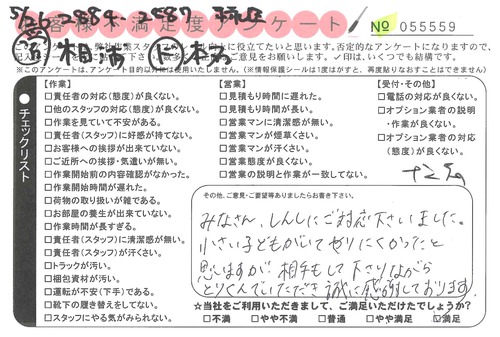 5/20 2884-2887
お客様不満足度アンケート
№ 055559
を見て、弊社作業スタ
向上に役立てたいと思います。否定的なアンケートになりますので、
ご意見をお願いします。✓印は、いくつでも結構です。
※このアンケートは、アンケート目的以外には使用いたしません。(※情報保護シールは1度がすと、再度貼りなおすことはできません)
チェックリスト
【作業】
□責任者の対応(態度)が良くない。
□他のスタッフの対応(態度)が良くない。
□作業を見ていて不安がある。
□責任者(スタッフ)に好感が持てない。
□お客様への挨拶が出来ていない。
□ご近所への挨拶・気遣いが無い。
□作業開始前の内容確認がなかった。
□作業開始時間が遅れた。
□荷物の取り扱いが雑である。
□お部屋の養生が出来ていない。
□作業時間が長すぎる。
□責任者(スタッフ)に清潔感が無い。
□責任者(スタッフ)が汗くさい。
□トラックが汚い。
□梱包資材が汚い。
□運転が不安(下手)である。
□靴下の履き替えをしてない。
□スタッフにやる気がみられない。
【営業】
□見積もり時間に遅れた。
□見積もり時間が長い。
□営業マンに清潔感が無い。
□営業マンが煙草くさい。
□営業マンが汗くさい。
□営業態度が良くない。
□営業の説明と作業が一致してない。
【受付・その他】
□電話の対応が良くない。
□オプション業者の説明・作業が良くない。
□オプション業者の対応(態度)が良くない。
その他、ご意見・ご要望等ありましたらお書き下さい。
みなさん、しんしにご対応下さいました。
小さい子どもがいてやりにくかったと
思いますが 相手もして下さりながら
とりくんでいただき 誠に感謝しております
☆当社をご利用いただきまして、ご満足いただけたでしょうか?
□不満 □やや不満 □普通 □やや満足 □満足